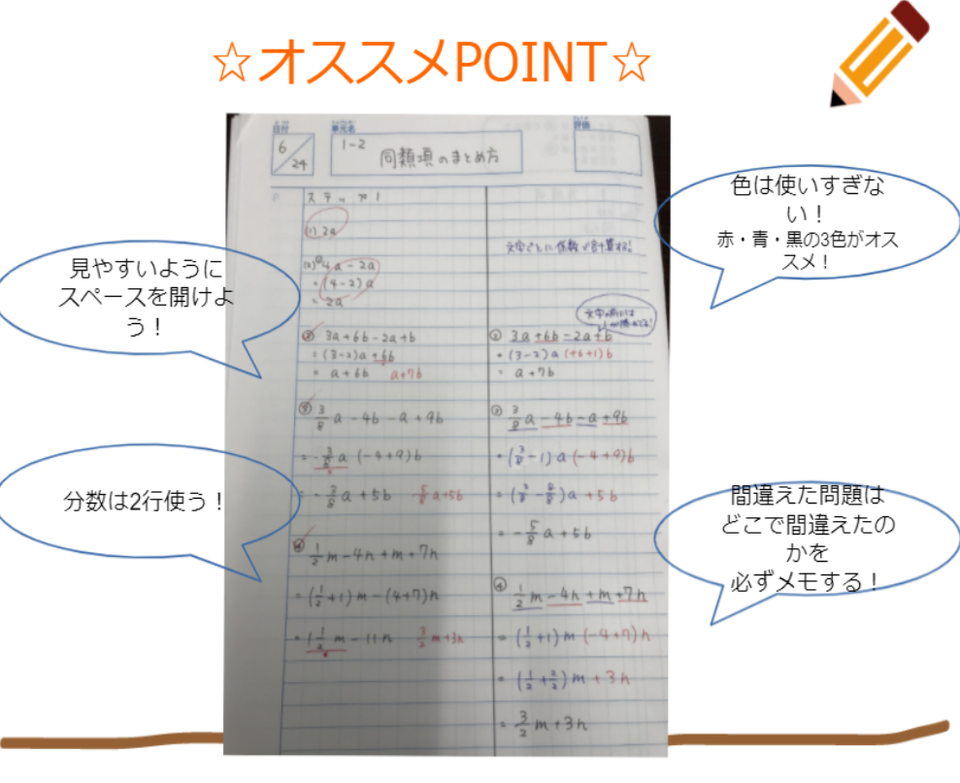 ☆オススメPOINT☆
見やすいように
スペースを開けよ
う！
分数は2行使う！
色は使いすぎな
い！
赤・青・黒の3色がオス
スメ！
間違えた問題は
どこで間違えたの
かを
必ずメモする！
日付
単元名
評価
6/24
1-2
同類項のまとめ方
ステップ1
(1) 2a
4a-2a
=(4-2)a
=2a
3a+6b-2a+b
=(3-2)a+6b
=a+6b a+7b
3/8 a-4b-a+9b
(-4+9)b
5/8 a+5b
1/2 m-4n+m+7n
=(1/2+1)m-(4+7)n
=1 1/2 m-11n 3/2 m+3n
文字ごとに係数を計算する!
3a+6b-2a+b
=(3-2)a(+6+1)b
=a+7b
3/8 a-4b-a+9b
=(3/8-1)a(-4+9)b
=(3/8-8/8)a+5b
=-5/8 a+5b
1/2 m-4n+m+7n
=(1/2+1)m(-4+7)n
=(1/2+2/2)m+3n
=3/2 m+3n